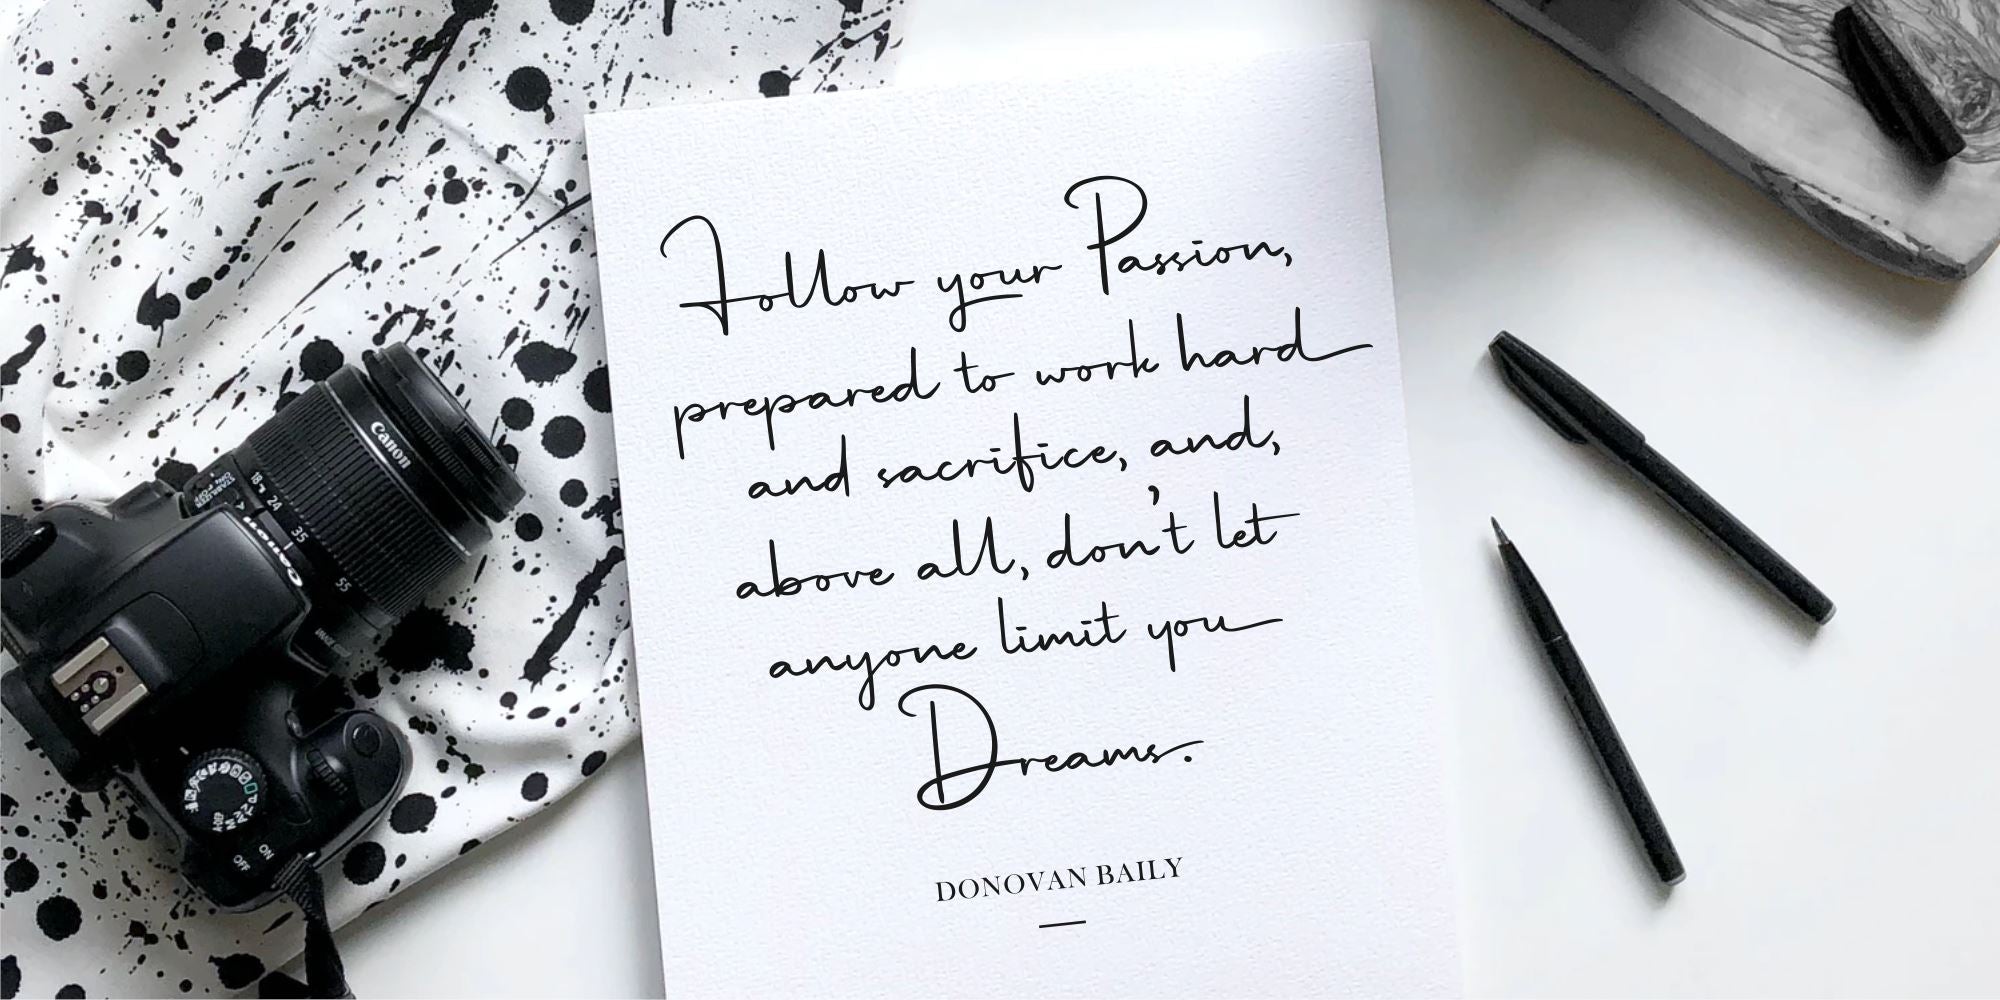 Follow your Passion,
prepared to work hard
and sacrifice, and,
above all, don't let
anyone limit you
Dreams.
DONOVAN BAILY
Canon
STABILIZER
ON OFF
18 24 35 55
Canon
ON
OFF